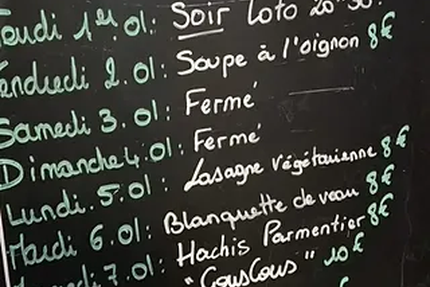 Jeudi 1er.01: Soir Loto
Vendredi 2.01: Soupe à l'oignon 8€
Samedi 3.01: Fermé
Dimanche 4.01: Fermé
Lundi. 5.01: Lasagne végétarienne 8€
Mardi 6.01: Blanquette de veau 8€
7.01: Hachis Parmentier 8€
"CousCous" 10€